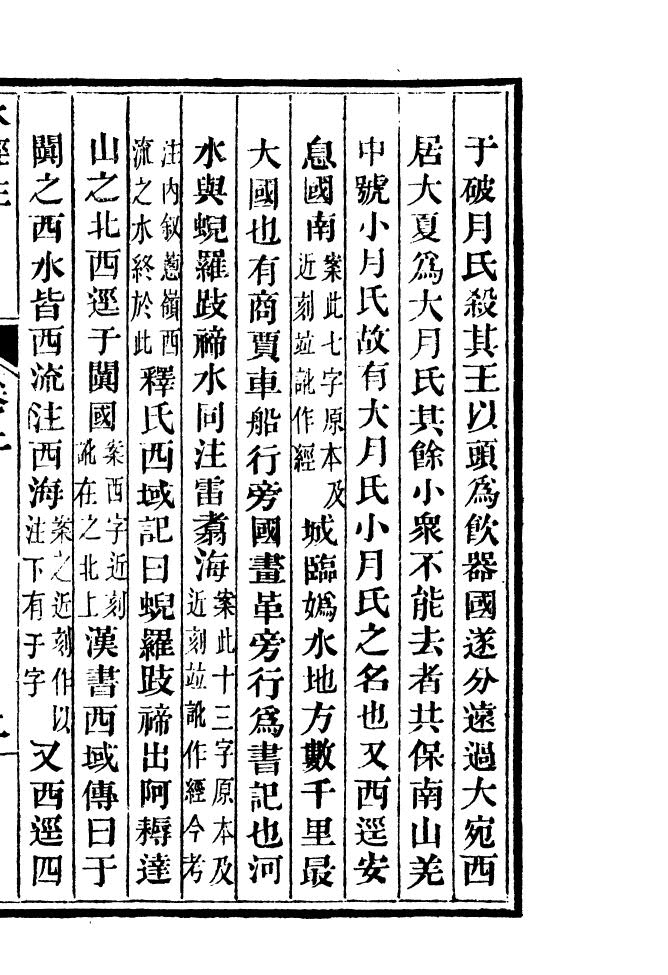 于破月氏殺其王以頭爲飲器國遂分遠過大宛西
居大夏爲大月氏其餘小衆不能去者共保南山羌
中號小月氏故有大月氏小月氏之名也又西逕安
息國南案此七字原本及近刻竝訛作經城臨媯水地方數千里最
大國也有商賈車船行旁國畫革旁行爲書記也河
水與蜺羅跂禘水同注雷翥海案此十三字原本及近刻竝訛作經今考
注內叙蔥嶺西流之水終於此釋氏西域記曰蜺羅跂禘出阿耨達
山之北西逕于闐國案西字近刻訛在之北上漢書西域傳曰于
闐之西水皆西流注西海案之近刻作以注下有于字又西逕四
水經注